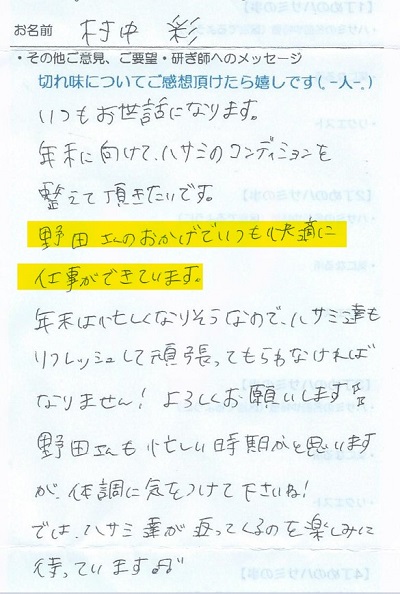 お名前 村中 彩
・その他ご意見、ご要望・研ぎ師へのメッセージ
切れ味についてご感想頂けたら嬉しです(.-人-.)
いつもお世話になります。
年末に向けて、ハサミのコンディションを
整えて頂きたいです。
野田さんのおかげでいつも快適に
仕事ができています。
年末は忙しくなりそうなので、ハサミ達も
リフレッシュして頑張ってもらわなければ
なりません! よろしくお願いします
野田さんも忙しい時期かと思います
が、体調に気をつけて下さいね!
では、ハサミ達が返ってくるのを楽しみに
待っています♫